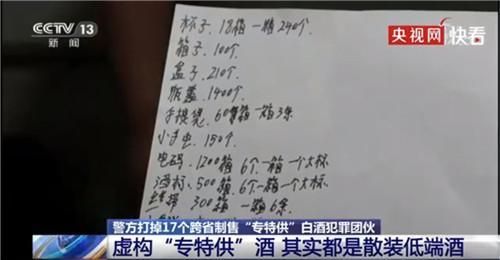 CCTV 13
新闻
央视网 快看
杯子、18箱 一箱240个
箱子、100个
盒子、210个
瓶盖、1400个
手提袋、60箱 一箱3条
150个
电码、1200箱 6个一箱 一个大标
酒标、500箱 6个一箱 一个大标
300箱 一箱6个
警方打掉17个跨省制售“专特供”白酒犯罪团伙
虚构“专特供”酒 其实都是散装低端酒